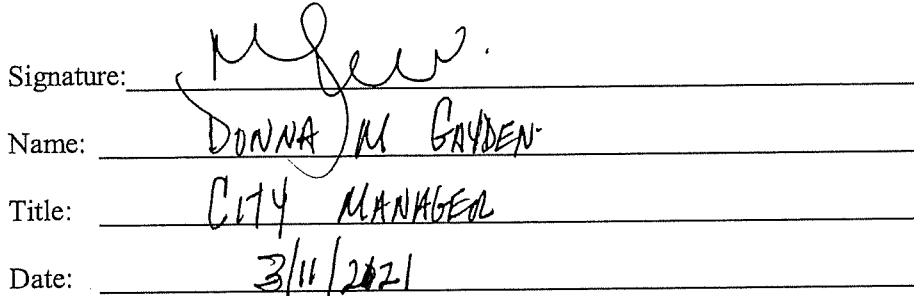 Signature:
Name: DONNA M GAYDEN
Title: CITY MANAGER
Date: 3/11/2021